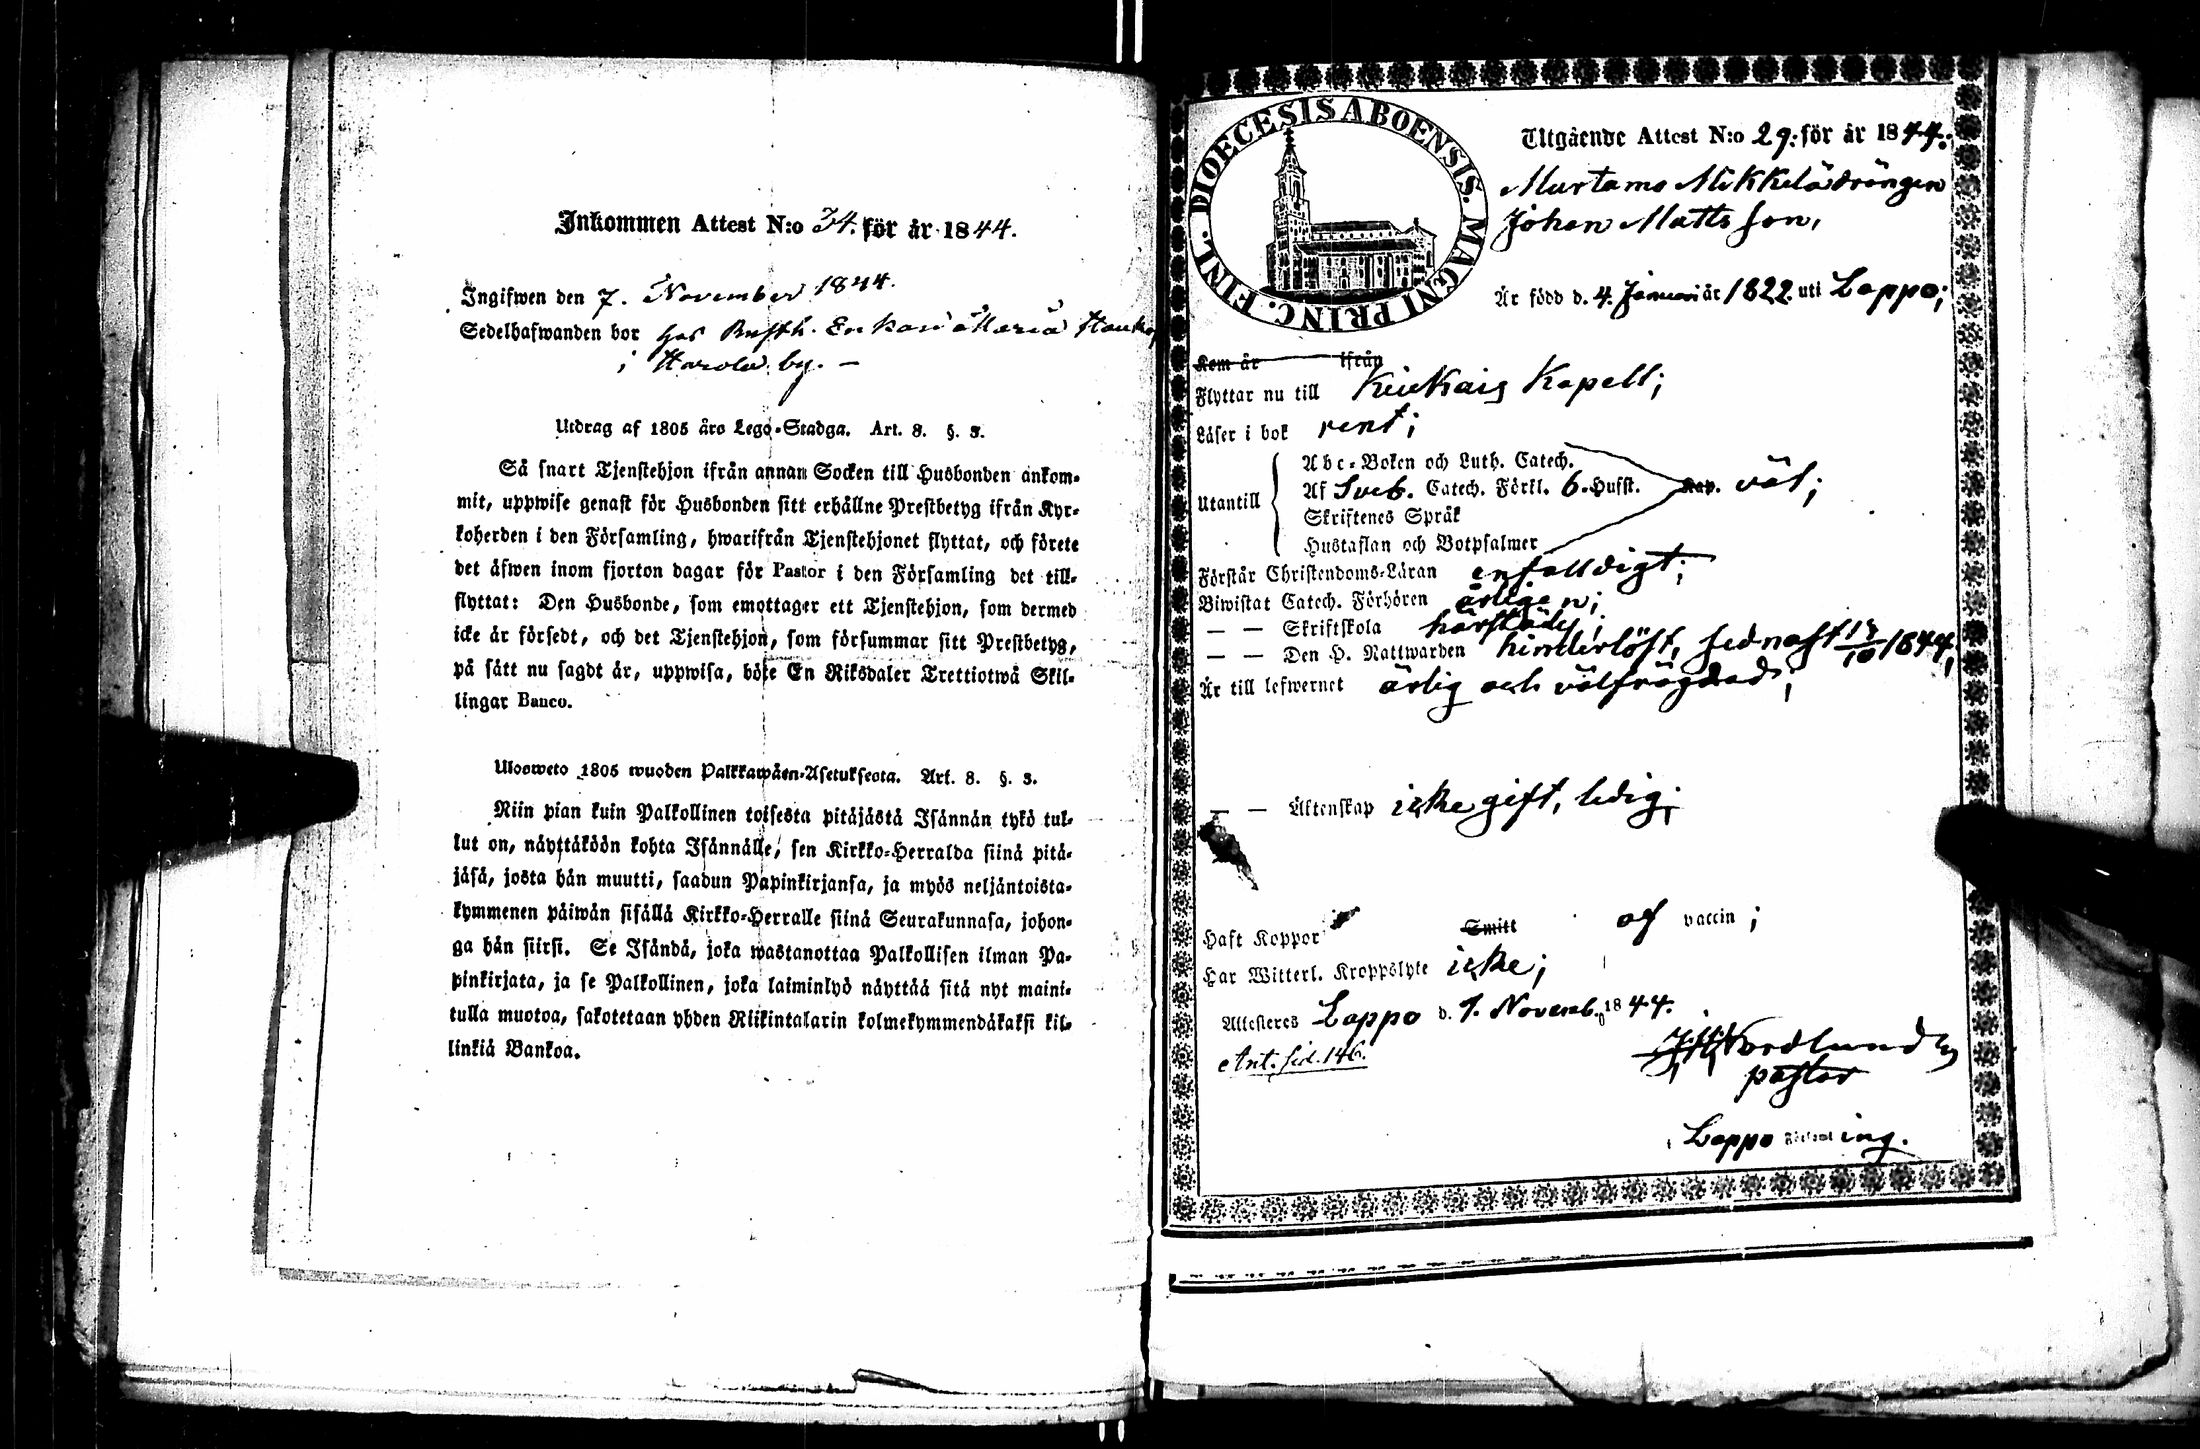 Inkommen Attest N:o 34. för år 1844.
Ingifwen den 7. November 1844.
Sedelhafwanden bor hos Rusth. Enkan Maria
i Harola by. –
Utdrag af 1805 års Lego-Stadga. Art. 8. §. 3.
Så snart Tjenstehjon ifrån annan Socken till Husbonden ankom-
mit, uppwise genast för Husbonden sitt erhållne Prestbetyg ifrån Kyr-
koherden i den Församling, hwarifrån Tjenstehjonet flyttat, och förete
det äfwen inom fjorton dagar för Pastor i den Församling det till-
flyttat: Den Husbonde, som emottager ett Tjenstehjon, som dermed
icke är försedt, och det Tjenstehjon, som försummar sitt Prestbetyg,
på sätt nu sagdt är, uppwisa, böte En Riksdaler Trettiotwå Skil-
lingar Banco.
Ulosweto 1805 wuoden Palkkawäen-Asetuksesta. Art. 8. §. 3.
Niin pian kuin Palkollinen toisesta pitäjästä Isännän tykö tul-
lut on, näyttäköön kohta Isännälle, sen Kirkko-Herralda siinä pitä-
jäsä, josta hän muutti, saadun Papinkirjansa, ja myös neljäntoista-
kymmenen päiwän sisällä Kirkko-Herralle siinä Seurakunnasa, johon-
ga hän siirsi. Se Isändä, joka wastanottaa Palkollisen ilman Pa-
pinkirjata, ja se Palkollinen, joka laiminlyö näyttää sitä nyt maini-
tulla muotoa, sakotetaan yhden Riikintalarin kolmekymmendäkaksi kil-
linkiä Bankoa.
DIOECESIS ABOENSIS. MAGNI PRINC. FINL.
Utgående Attest N:o 29. för år 1844.
Murtamo Mikkelä drängen
Johan Matts son,
Är född d. 4. Januari år 1822. uti Loppo;
Kom år ifrån
Flyttar nu till Kiukais Kapell;
Läser i bok rent;
Abc-Boken och Luth. Catech.
Utantill Af Sveb. Catech. Förkl. 6. Hufst. Kap. väl;
Skriftenes Språk
Hustaflan och Botpsalmer
Förstår Christendoms-Läran enfalldigt;
Biwistat Catech. Förhören årligen;
— — Skriftskola härstädes;
— — Den H. Nattwarden hinderlöst, sednast 13/10 1844,
Är till lefwernet ärlig och välfrägdad;
— — Äktenskap icke gift, ledig;
Haft Koppor Smitt af vaccin;
Har Witterl. Kroppslyte icke;
Attesteres Loppo d. 1. Novemb. 1844.
Ant. sid. 146. Nordlund
pastor
i Loppo Församling.